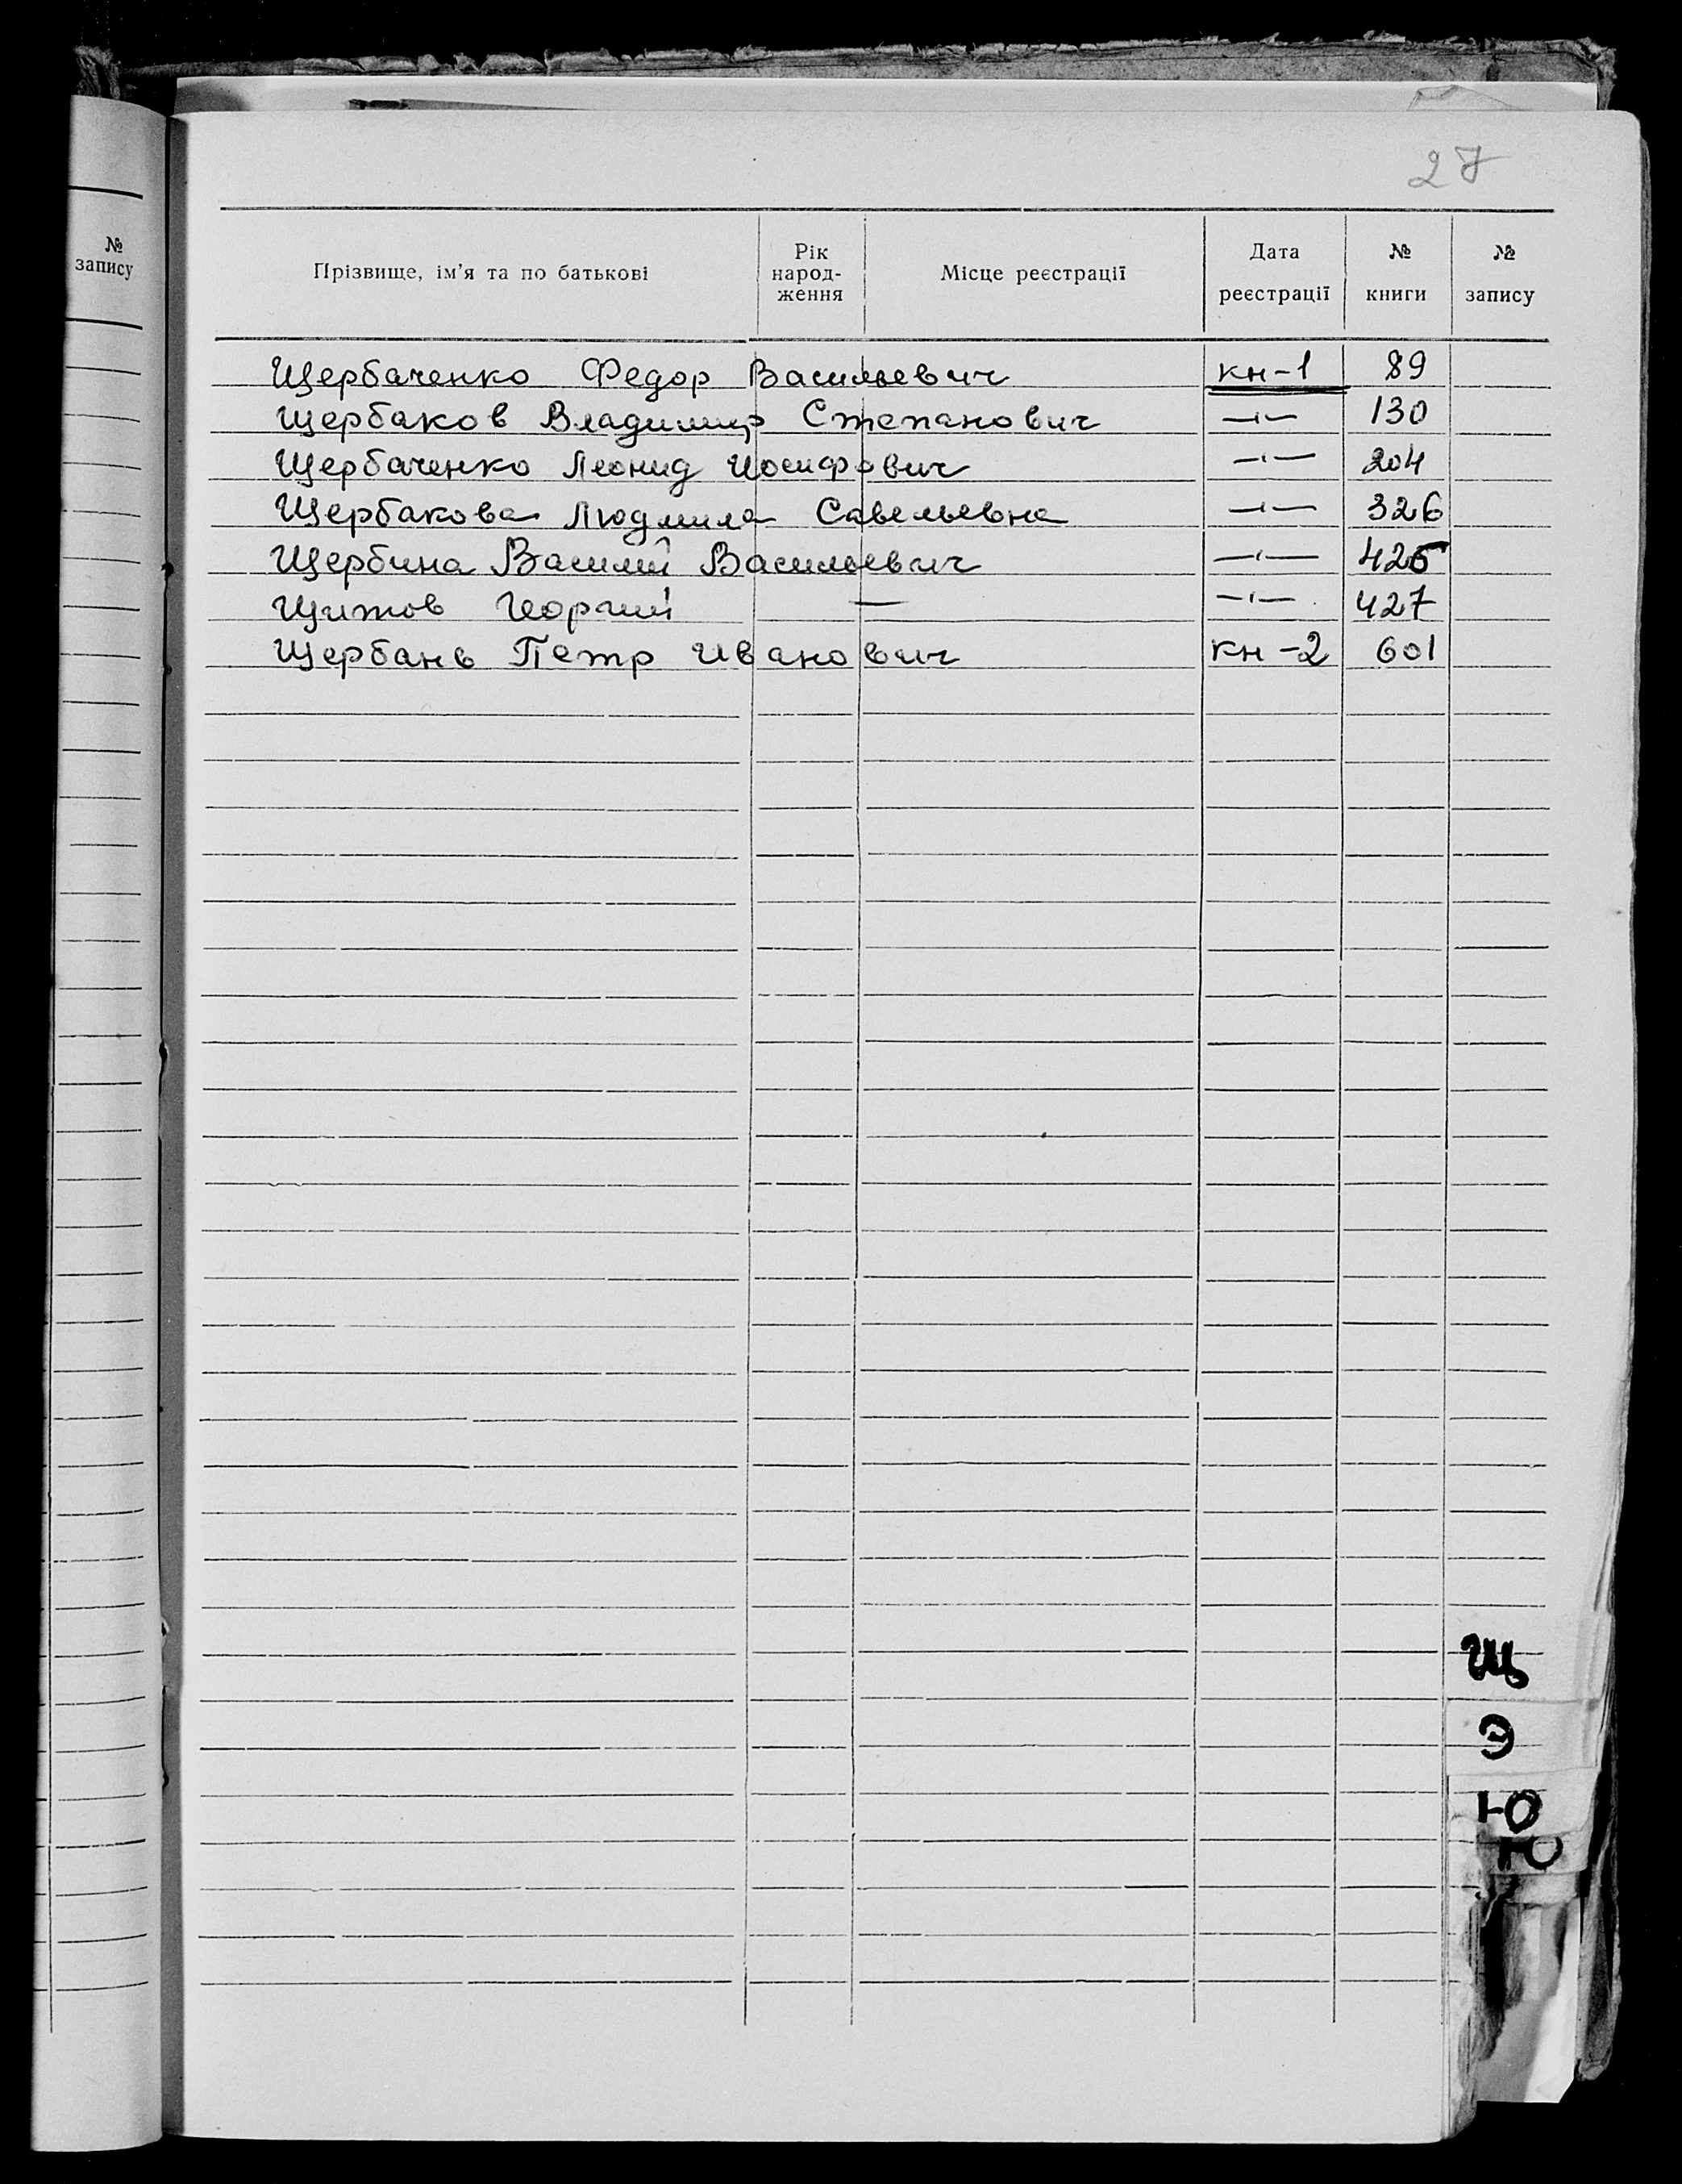 27
№ запису
Прізвище, ім'я та по батькові Рік народ- ження Місце реєстрації Дата реєстрації № книги № запису
Щербаченко Федор Васильевич кн-1 89
Щербаков Владимир Степанович —ı— 130
Щербаченко Леонид Иосифович —ı— 204
Щербакова Людмила Савельевна —ı— 326
Щербина Василий Васильевич —ı— 425
Георгий — —ı— 427
Щербань Петр Иванович кн-2 601
Щ
Э
Ю
Ю